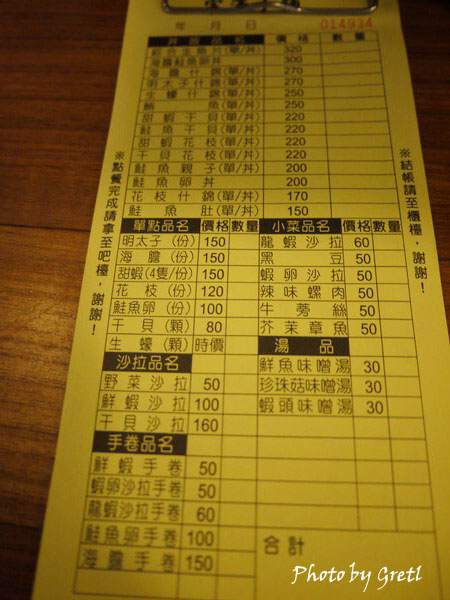 年 月 日 014934
丼飯品名 價格 數量
綜合生魚片(單/丼) 320
海膽鮭魚卵丼 300
海膽什錦(單/丼) 270
明太子什錦(單/丼) 270
生蠔什錦(單/丼) 250
鮪魚(單/丼) 250
甜蝦干貝(單/丼) 220
鮭魚干貝(單/丼) 220
甜蝦花枝(單/丼) 220
干貝花枝(單/丼) 220
鮭魚親子(單/丼) 200
鮭魚卵丼 200
花枝什錦(單/丼) 170
鮭魚肚(單/丼) 150
單點品名 價格 數量
明太子(份) 150
海膽(份) 150
甜蝦(4隻/份) 150
花枝(份) 120
鮭魚卵(份) 100
干貝(顆) 80
生蠔(顆) 時價
沙拉品名
野菜沙拉 50
鮮蝦沙拉 100
干貝沙拉 160
手卷品名
鮮蝦手卷 50
蝦卵沙拉手卷 50
龍蝦沙拉手卷 60
鮭魚卵手卷 100
海膽手卷 150
小菜品名 價格 數量
龍蝦沙拉 60
黑豆 50
蝦卵沙拉 50
辣味螺肉 50
牛蒡絲 50
芥茉章魚 50
湯品
鮮魚味噌湯 30
珍珠菇味噌湯 30
蝦頭味噌湯 30
合計
※點餐完成請拿至吧檯，謝謝！
※結帳請至櫃檯，謝謝！
Photo by Gretl